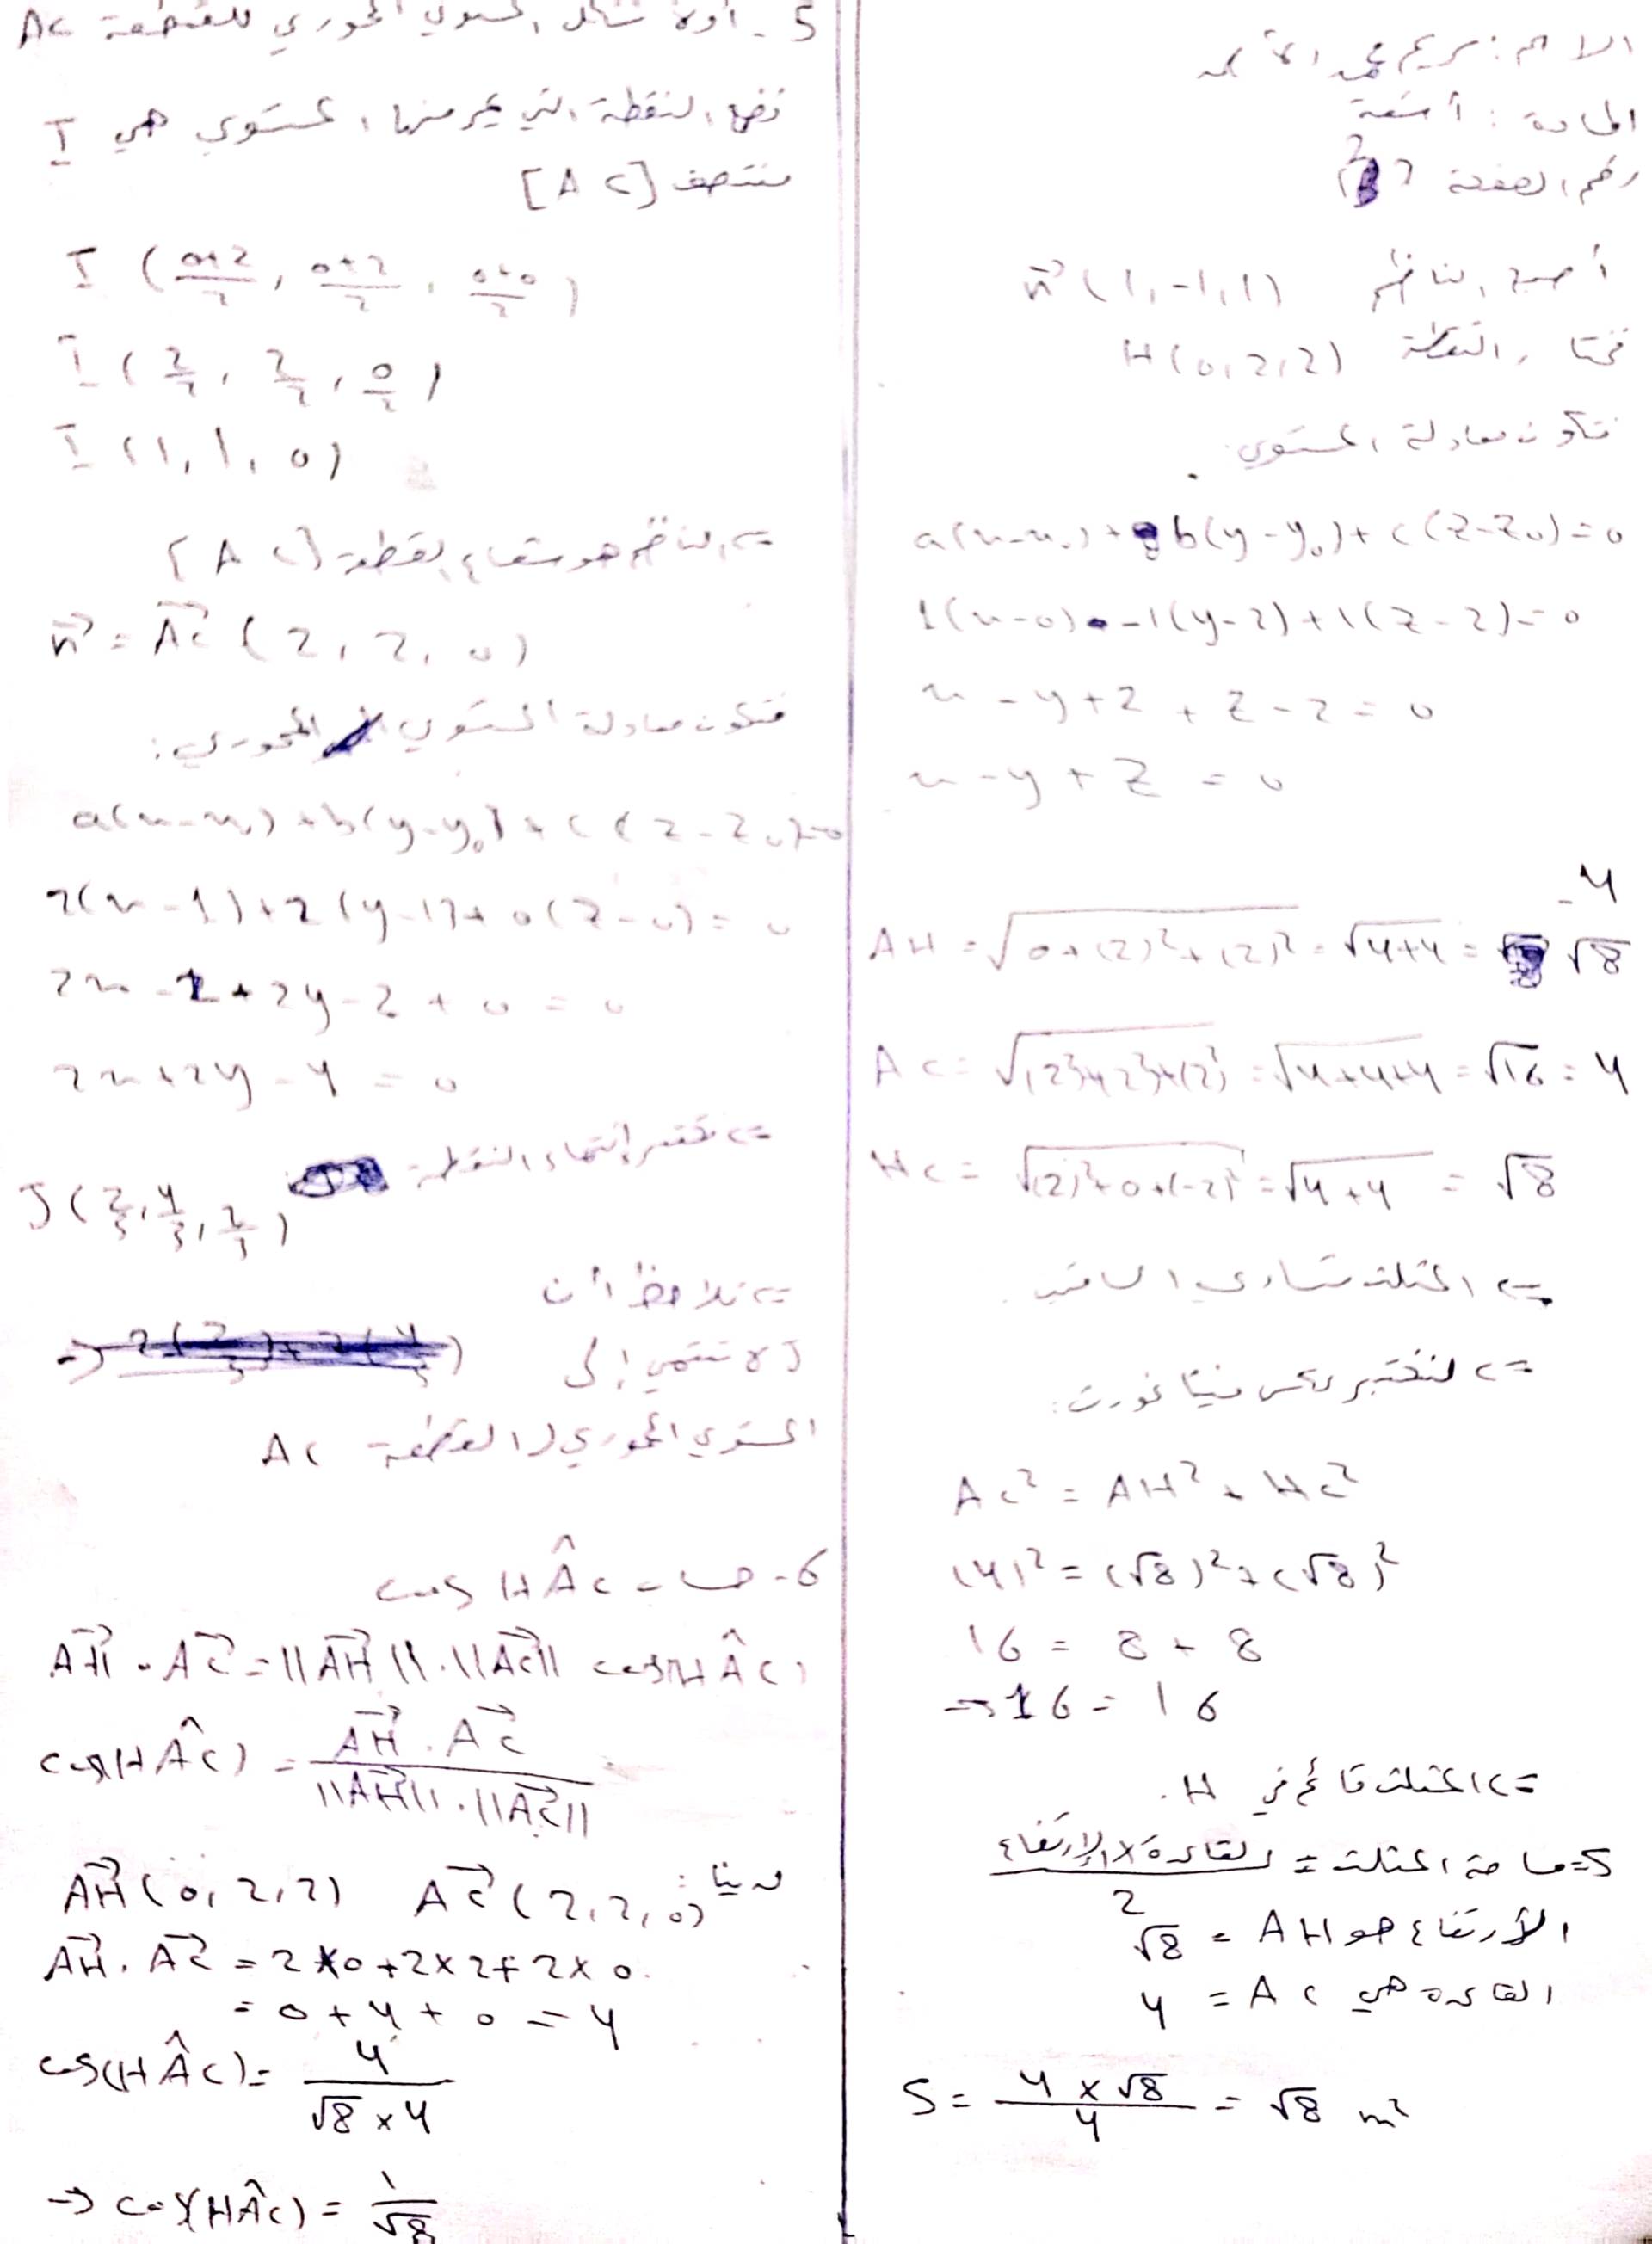 الاسم: مريم محمد الأ
المادة: أشعة
رقم الصفحة 2
أصبح الناظم n⃗ (1, -1, 1)
نختار النقطة H(0, 2, 2)
فتكون معادلة المستوي:
a(x-x₀) + b(y-y₀) + c(z-z₀) = 0
1(x-0) - 1(y-2) + 1(z-2) = 0
x - y + 2 + z - 2 = 0
x - y + z = 0
-4
AH = √(0+(2)²+(2)²) = √(4+4) = √8
AC = √((2)²+(2)²+(2)²) = √(4+4+4) = √16 = 4
HC = √((2)²+0+(-2)²) = √(4+4) = √8
=> المثلث متساوي الساقين
=> لنختبر عكس فيثاغورث:
AC² = AH² + HC²
(4)² = (√8)² + (√8)²
16 = 8 + 8
→ 16 = 16
=> المثلث قائم في H.
S = مساحة المثلث = القاعدة × الارتفاع / 2
الارتفاع هو AH = √8
القاعدة هي AC = 4
S = (4 × √8)/4 = √8 m²
5- أولاً المستوي المحوري للقطعة AC
نضع النقطة التي يمر منها المستوي هي I
منتصف [AC]
I ((0+2)/2, (0+2)/2, (0+0)/2)
I (2/2, 2/2, 0/2)
I (1, 1, 0)
=> الناظم هو شعاع القطعة [AC]
n⃗ = AC⃗ (2, 2, 0)
فتكون معادلة المستوي المحوري:
a(x-x₀) + b(y-y₀) + c(z-z₀) = 0
2(x-1) + 2(y-1) + 0(z-0) = 0
2x - 2 + 2y - 2 + 0 = 0
2x + 2y - 4 = 0
=> نختبر انتماء النقطة
J (2/3, 4/3, 2/3)
=> نلاحظ أن
J لا تنتمي إلى
المستوي المحوري للقطعة AC
6- حساب cos HÂC
AH⃗ . AC⃗ = ||AH⃗|| . ||AC⃗|| cos(HÂC)
cos(HÂC) = (AH⃗ . AC⃗)/(||AH⃗|| . ||AC⃗||)
لدينا: AH⃗ (0, 2, 2) AC⃗ (2, 2, 0)
AH⃗ . AC⃗ = 2×0 + 2×2 + 2×0
= 0 + 4 + 0 = 4
cos(HÂC) = 4/(√8 × 4)
→ cos(HÂC) = 1/√8